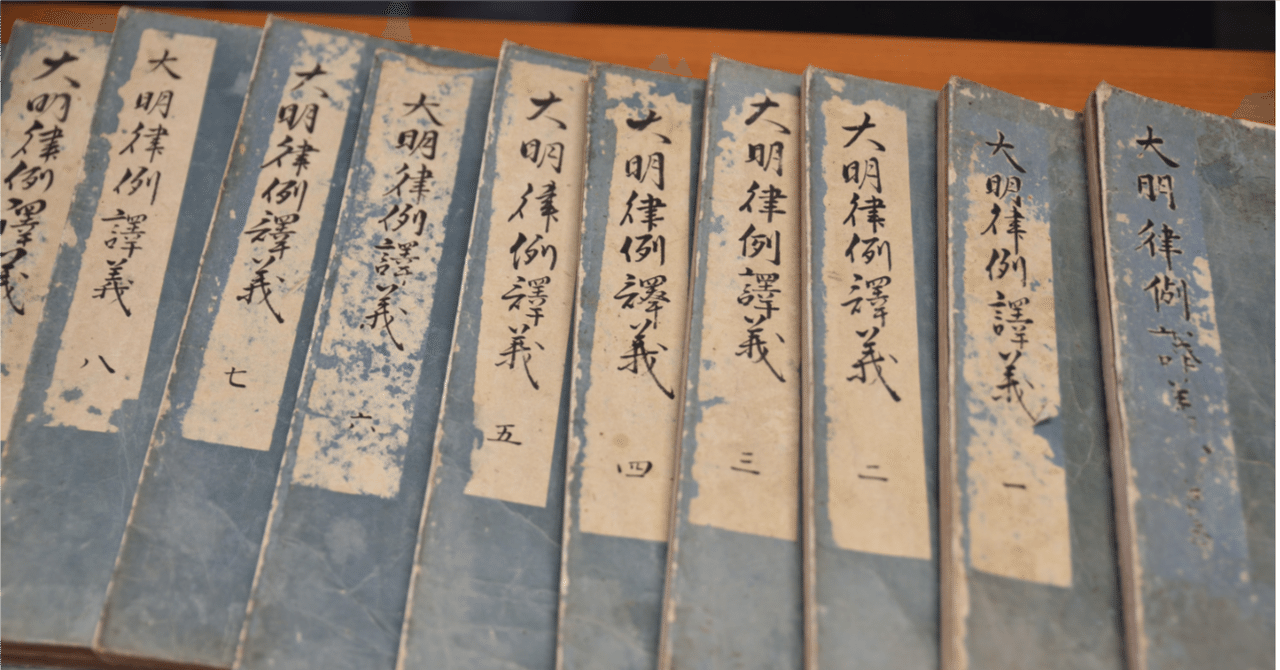 大明律例譯義
大明律例譯義 一
大明律例譯義 二
大明律例譯義 三
大明律例譯義 四
大明律例譯義 五
大明律例譯義 六
大明律例譯義 七
大明律例譯義 八
大明律例譯義